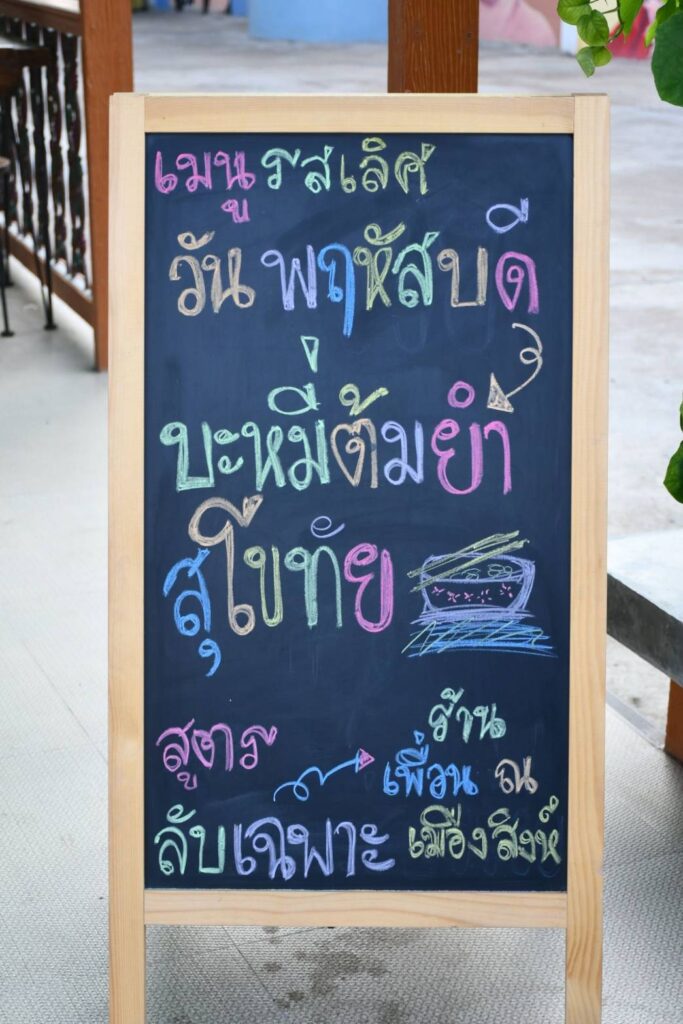 เมนูรสเลิศ
วันพฤหัสบดี
บะหมี่ต้มยำ
สุโขทัย
สูตร
ลับเฉพาะ
ร้าน
เพื่อน ณ
เมืองสิงห์